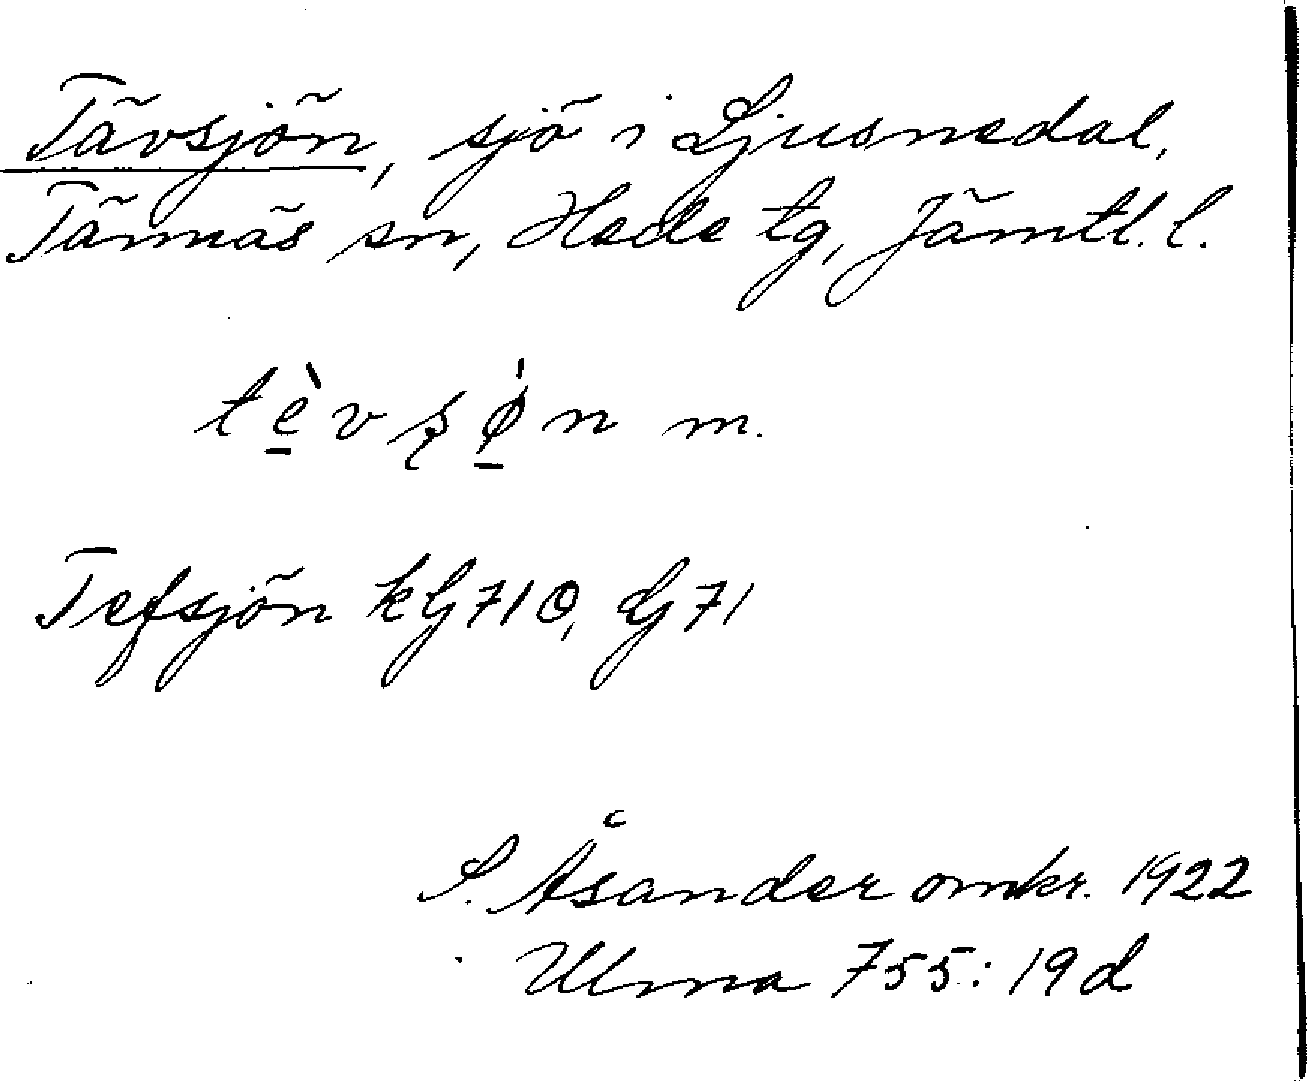 Tävsjön, sjö i Ljusnedal,
Tännäs sn, Hede tg, Jämtl. l.
tèvʂø̀n m.
Tefsjön kG710, G71
S. Åsander omkr. 1922
Ulma 755:19d